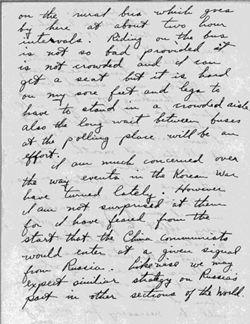 on the rural bus which goes
by here at about two hour
intervals. Riding on the bus
is not so bad provided it
is not crowded and I can
get a seat but it is hard
on my sore feet and legs to
have to stand in a crowded aisle
also the long wait between buses
at the polling place will be an
effort.
I am much concerned over
the way events in the Korean War
have turned lately. However
I am not surprised at them
for I have feared from the
start that the Chin Communists
would enter at a given signal
from Russia. Likewise we may
expect similiar strategy on Russia's
part in other sections of the World.